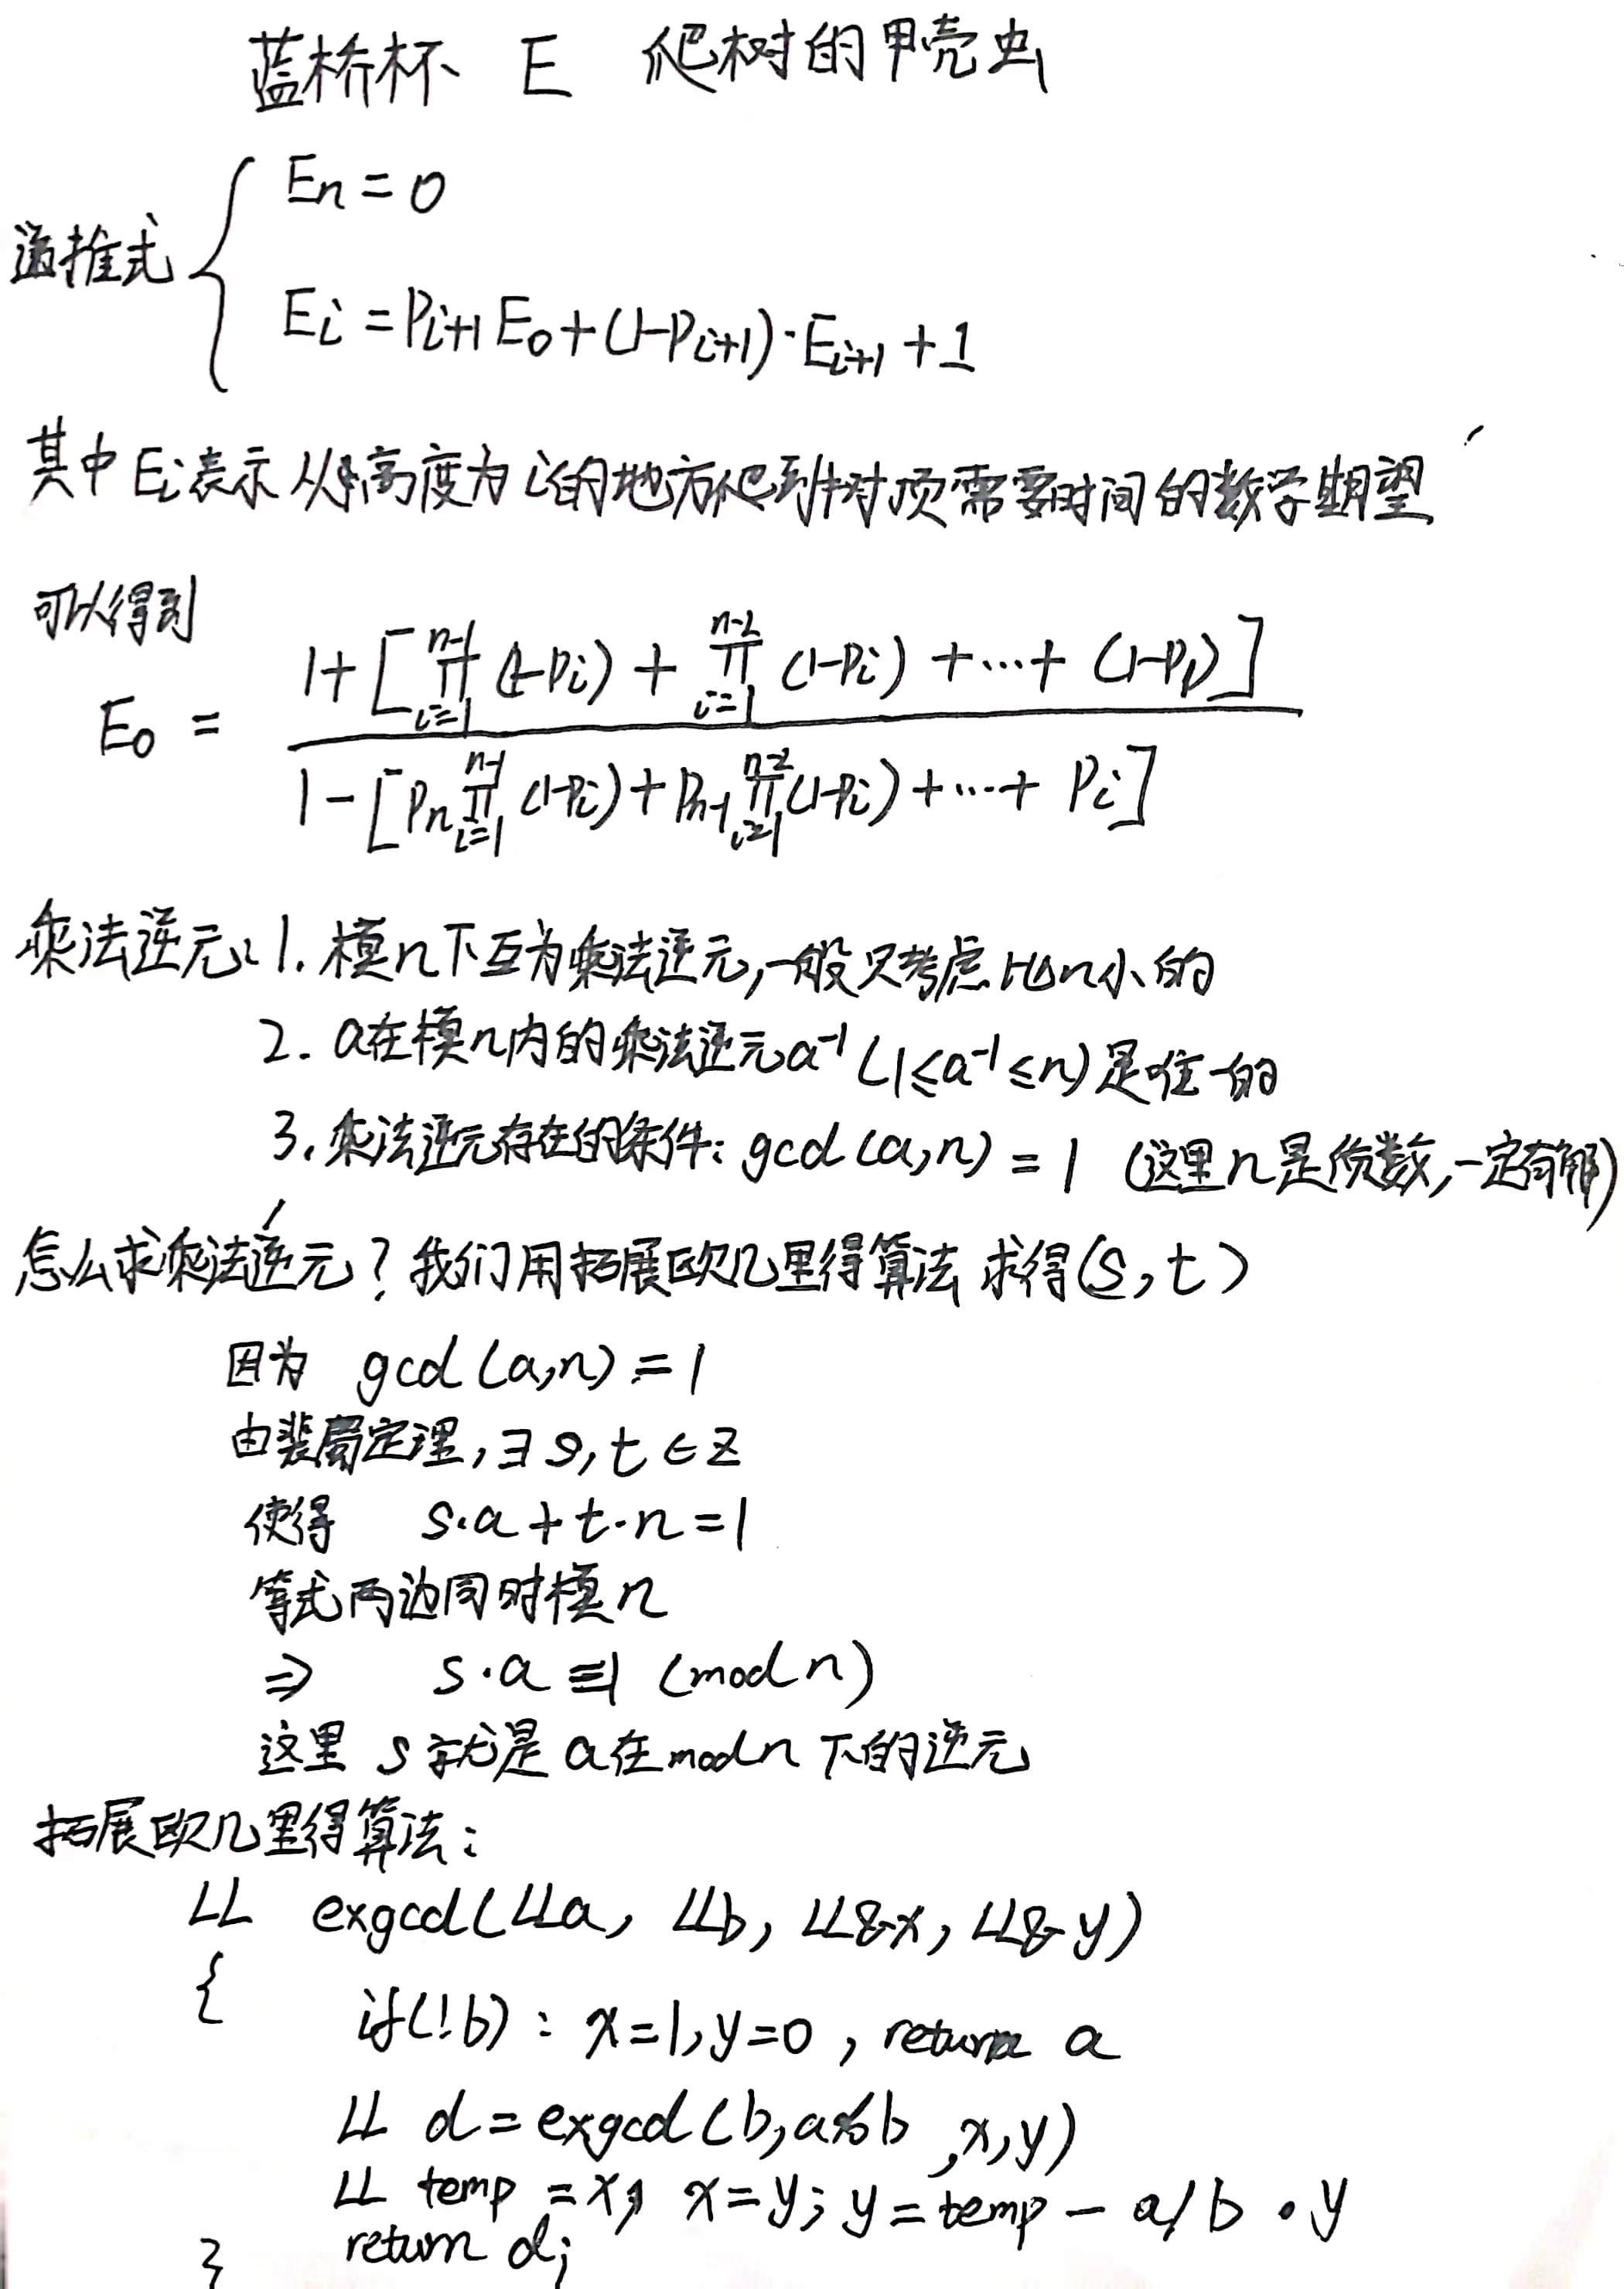 蓝桥杯 E 爬树的甲壳虫
E_n = 0
递推式
E_i = P_{i+1} E_0 + (1-P_{i+1})·E_{i+1} + 1
其中 E_i 表示从高度为 i 的地方爬到树顶需要时间的数学期望
可以得到
E_0 = \frac{1+[\prod_{i=1}^{n-1}(1-P_i) + \prod_{i=1}^{n-2}(1-P_i) + ... + (1-P_1)]}{1-[P_n \prod_{i=1}^{n-1}(1-P_i) + P_{n-1} \prod_{i=1}^{n-2}(1-P_i) + ... + P_i]}
乘法逆元: 1. 模n下互为乘法逆元,一般只考虑比n小的
2. a在模n内的乘法逆元a^{-1} (1≤a^{-1}≤n) 是唯一的
3. 乘法逆元存在的条件: gcd(a,n) = 1 (这里n是质数,一定有解)
怎么求乘法逆元? 我们用拓展欧几里得算法 求得(s, t)
因为 gcd(a,n) = 1
由裴蜀定理, ∃ s, t ∈ Z
使得 s·a + t·n = 1
等式两边同时模n
⇒ s·a ≡ 1 (mod n)
这里 s 就是 a在mod n 下的逆元
拓展欧几里得算法:
LL exgcd(LL a, LL b, LL& x, LL& y)
{
if(!b) : x=1, y=0 , return a
LL d = exgcd(b, a%b, x, y)
LL temp = x; x=y; y = temp - a/b · y
return d;
}